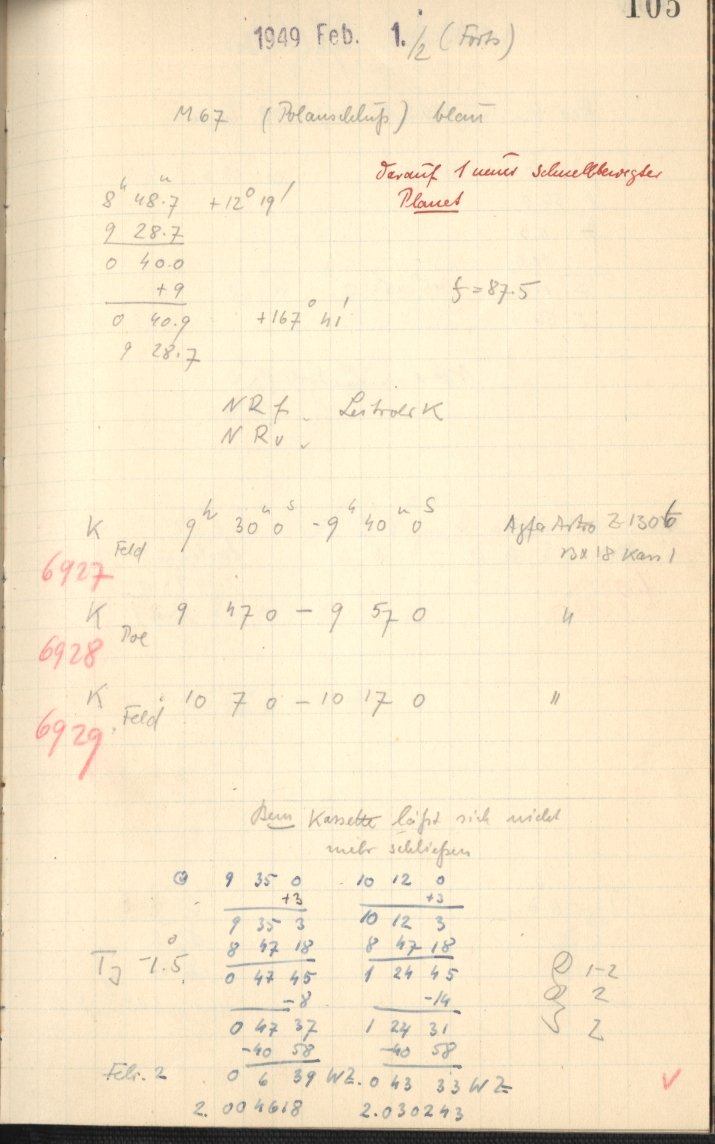 105
1949 Feb. 1./2 (Forts)
M 67 (Polanschluß) blau
darauf 1 neuer schnellbewegter
Planet
8h 48.7 +12° 19'
9 28.7
0 40.0
+9
0 40.9 +167° 41'
9 28.7
f = 87.5
NRf
NRv
K Feld 9h 30m 0s - 9h 40m 0s Agfa Astro Z 1306
6927 18 Kass 1
K Pol 9 47 0 – 9 57 0 "
6928
K Feld 10 7 0 – 10 17 0 "
6929
Kassette läßt sich nicht
mehr schließen
9 35 0 10 12 0
+3 +3
9 35 3 10 12 3
8 47 18 8 47 18
TJ -1.5°
0 47 45 1 24 45
-8 -14
0 47 37 1 24 31
-40 58 -40 58
1-2
2
2
Febr. 2 0 6 39 WZ. 0 43 33 WZ
2.004618 2.030243